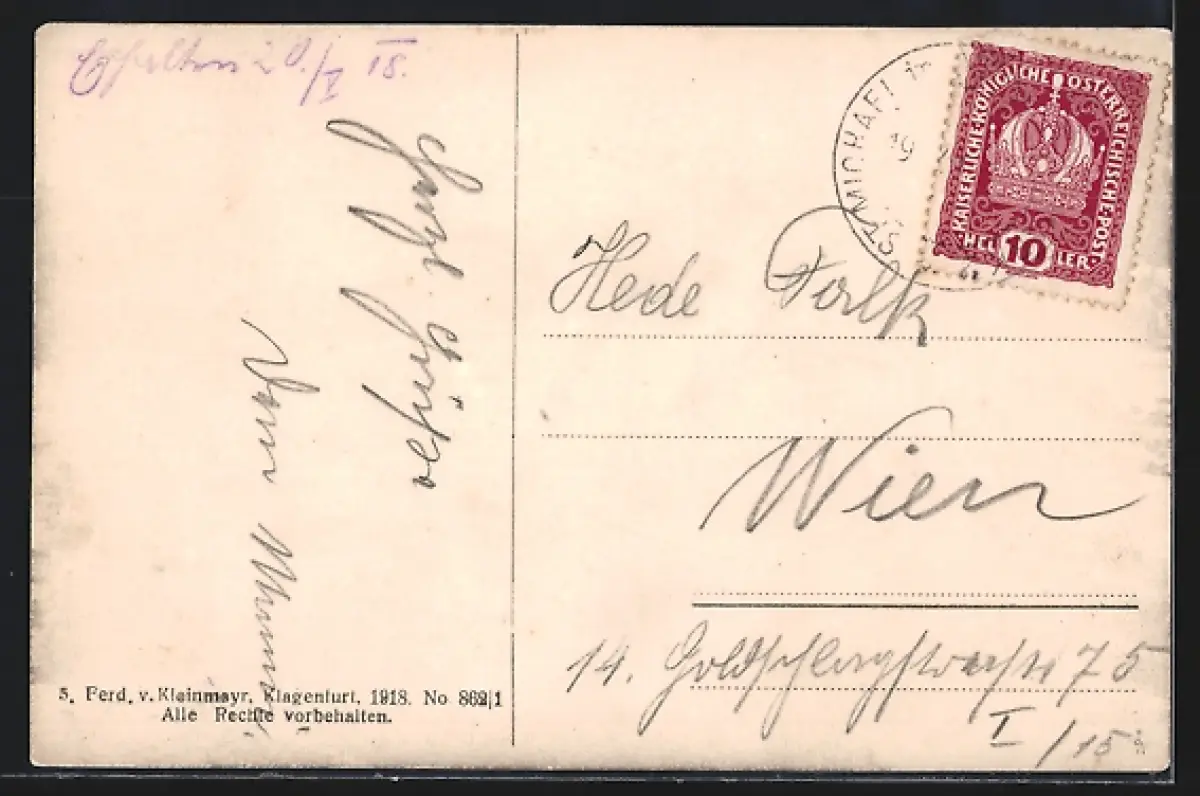 Erhalten 20./I 18.
Herzl. Grüße
Deine Mimmi.
5. Ferd. v. Kleinmayr, Klagenfurt, 1918. No 862|1
Alle Rechte vorbehalten.
ST. MICHAEL
19
KAISERLICHE KÖNIGLICHE ÖSTERREICHISCHE POST
HEL 10 LER
Hede Falk
Wien
14. Goldschlagstrasse 75
I/15